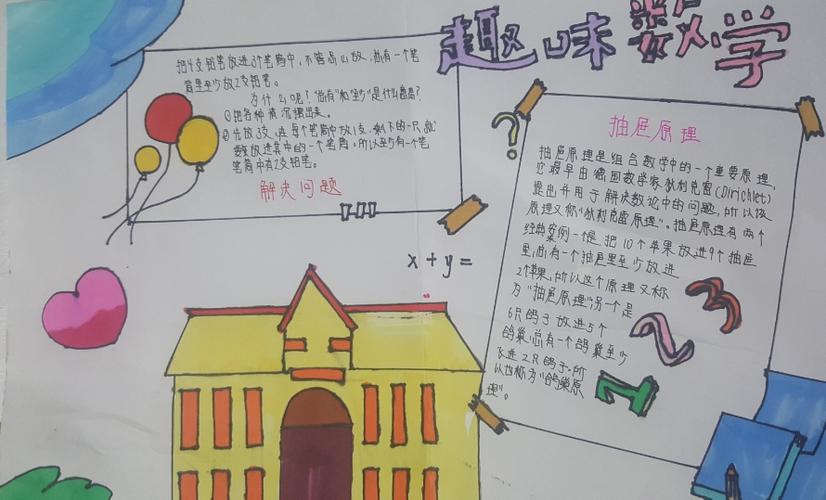 趣味数学
把4支铅笔放进3个笔筒中,不管怎么放,总有一个笔
筒里至少放2支铅笔。
为什么呢?“总有”和“至少”是什么意思?
①把各种情况摆出来。
②先放3支,在每个笔筒中放1支,剩下的一只就
要放进其中的一个笔筒,所以至少有一个笔
筒中有2支铅笔。
解决问题
x+y=
?
抽屉原理
抽屉原理是组合数学中的一个重要原理,
它最早由德国数学家狄利克雷(Dirichlet)
提出并用于解决数论中的问题,所以该
原理又称“狄利克雷原理”。抽屉原理有两个
经典案例一个是把10个苹果放进9个抽屉
里,总有一个抽屉里至少放进
2个苹果,所以这个原理又称
为“抽屉原理”;另一个是
6只鸽子放进5个
鸽巢,总有一个鸽巢至少
飞进2只鸽子,所
以也称为“鸽巢原
理”。
3
2
1